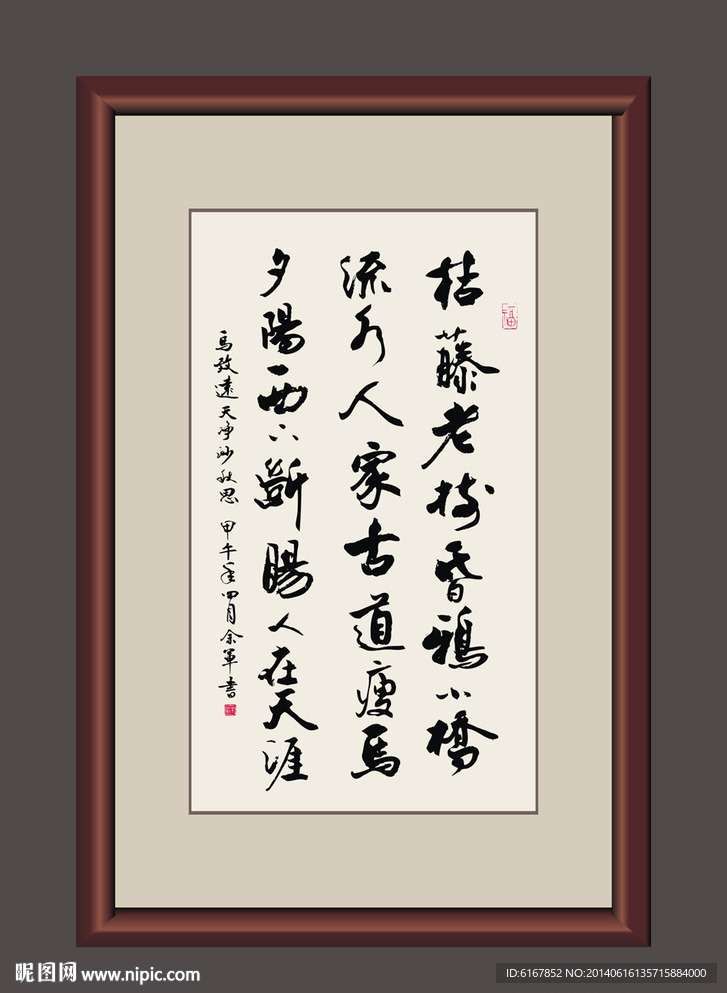 枯藤老樹昏鴉小橋
流水人家古道瘦馬
夕陽西下斷腸人在天涯
馬致遠天淨沙秋思 甲午年四月余軍書
福
昵图网 www.nipic.com
ID:6167852 NO:20140616135715884000